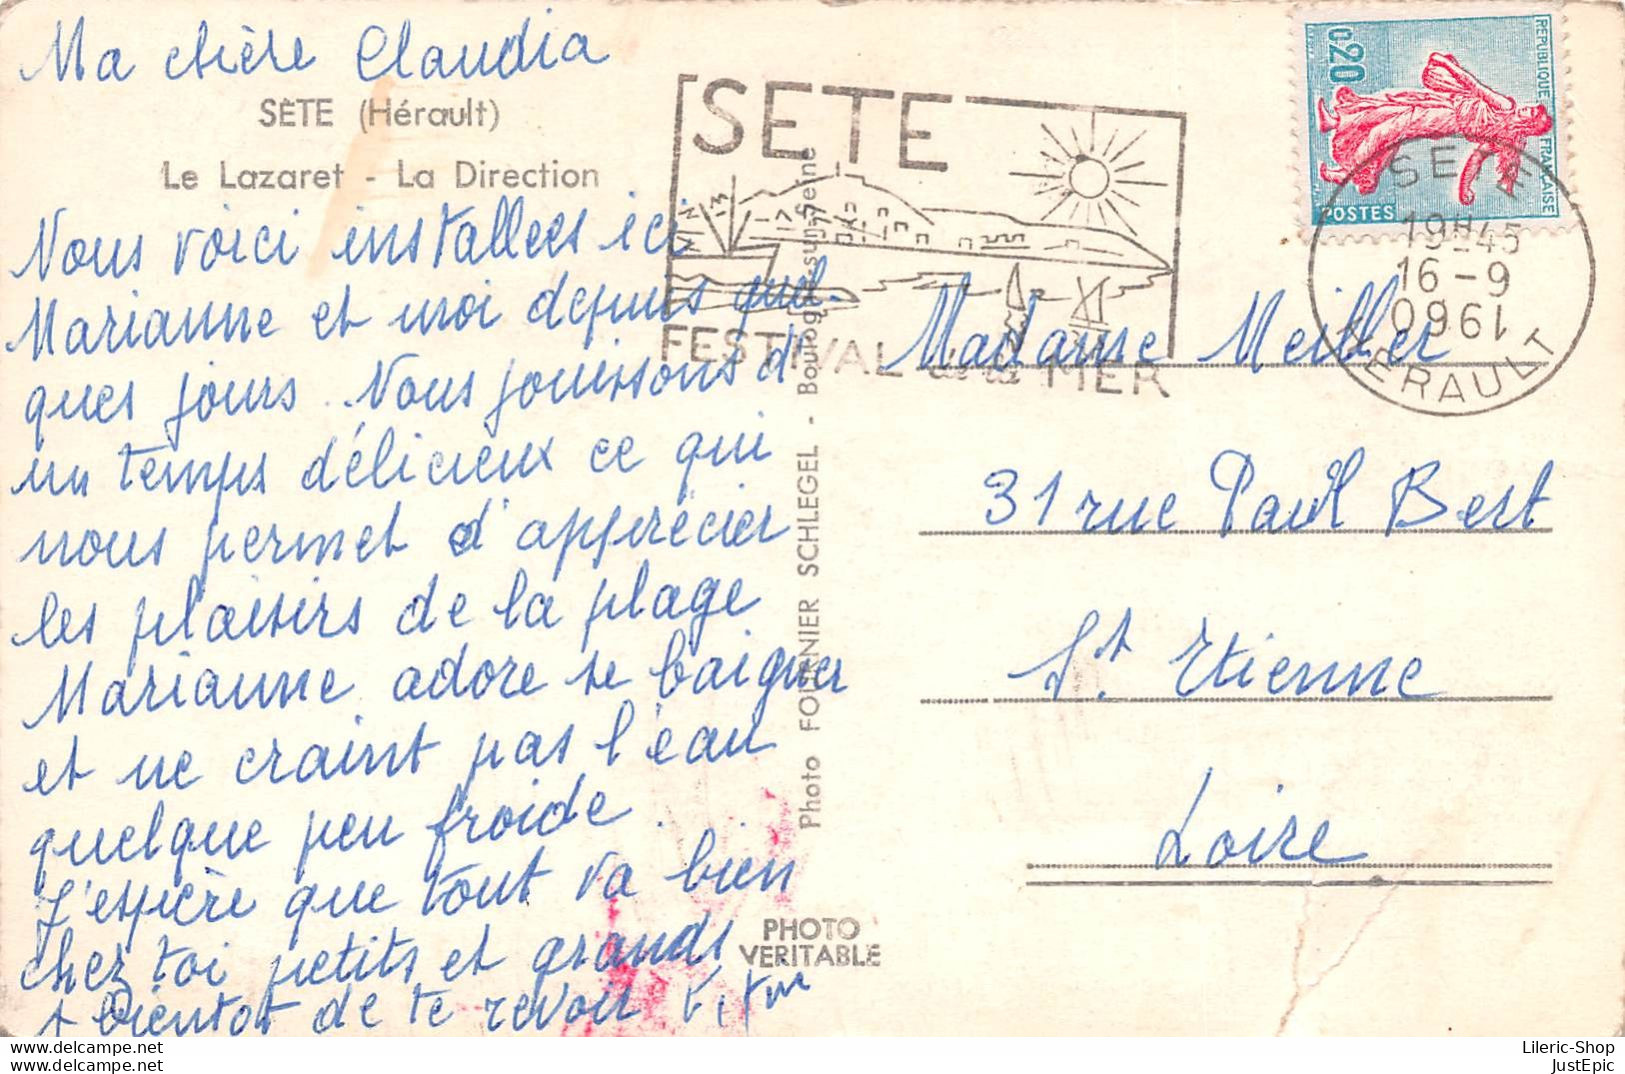 Ma chère Claudia
SÈTE (Hérault)
Le Lazaret - La Direction
Nous voici installées ici
Marianne et moi depuis quel.
ques jours. Nous jouissons d'
un temps délicieux ce qui
nous permet d'apprécier
les plaisirs de la plage
Marianne adore se baigner
et ne craint pas l'eau
quelque peu froide.
J'espère que tout va bien
chez toi petits et grands
A Bientôt de te revoir
Photo FOURNIER SCHLEGEL - Boulogne-sur-Seine
PHOTO
VERITABLE
SETE
FESTIVAL de la MER
0,20
REPUBLIQUE FRANCAISE
POSTES
SETE
19H45
16-9
1960
HERAULT
Madame Meiller
31 rue Paul Bert
St. Etienne
Loire
Lileric-Shop
JustEpic
www.delcampe.net